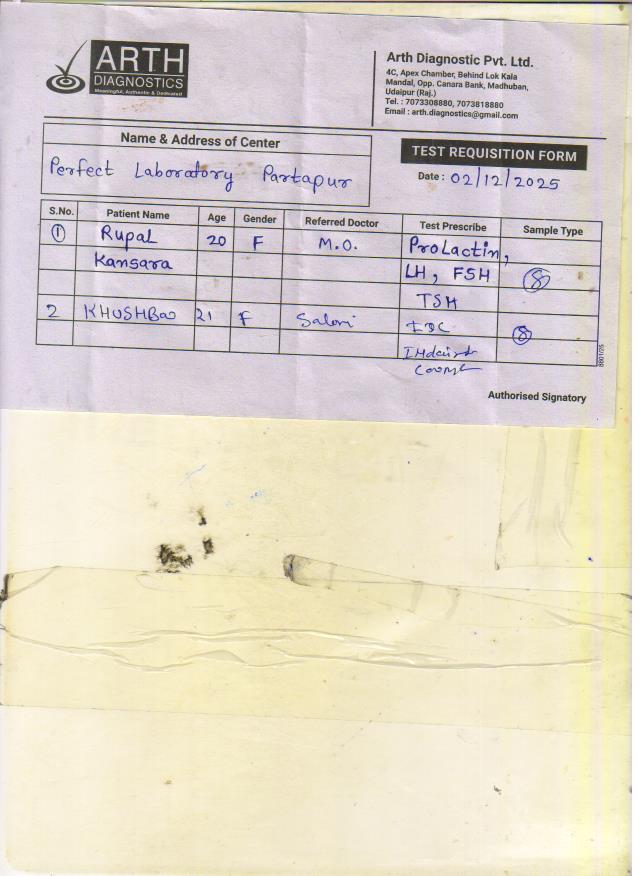 ARTH
DIAGNOSTICS
Meaningful, Authentic & Dedicated
Arth Diagnostic Pvt. Ltd.
4C, Apex Chamber, Behind Lok Kala
Mandal, Opp. Canara Bank, Madhuban,
Udaipur (Raj.)
Tel. : 7073308880, 7073818880
Email : arth.diagnostics@gmail.com
Name & Address of Center
Perfect Laboratory Partapur
TEST REQUISITION FORM
Date : 02/12/2025
S.No. Patient Name Age Gender Referred Doctor Test Prescribe Sample Type
1 Rupal 20 F M.O. ProLactin,
Kansara LH, FSH
TSH
2 KHUSHBoo 21 F Saloni
Authorised Signatory